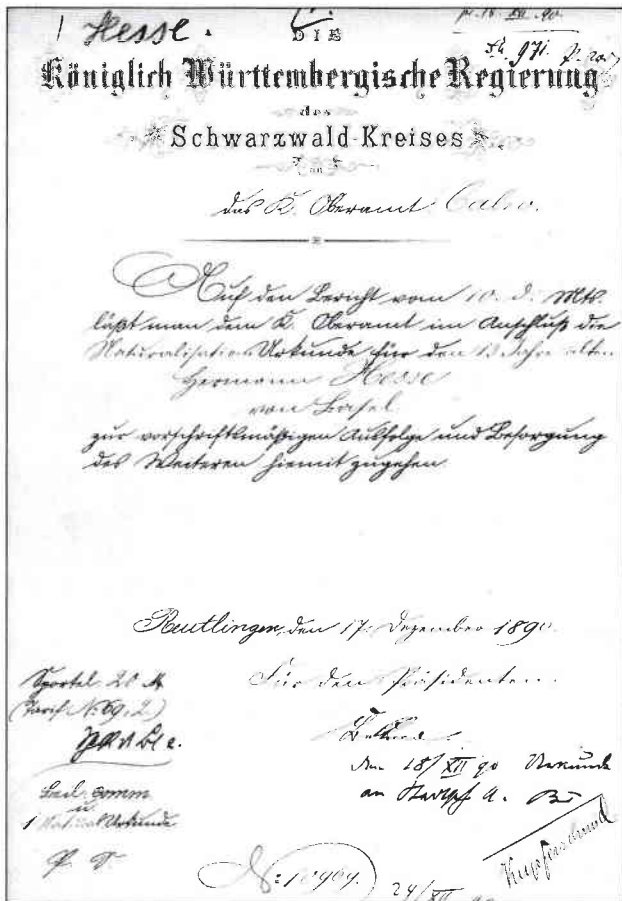 1 Hesse.
pr. 18. XII. 90.
DIE
971.
Königlich Württembergische Regierung
des
Schwarzwald-Kreises
an
das K. Oberamt Calw.
Auf den Bericht vom 10. d. Mts.
läßt man dem K. Oberamt im Anschluß die
Naturalisations Urkunde für den 13 Jahre alten
Hermann Hesse
von Basel
zur vorschriftsmäßigen Ausfolge und Besorgung
des Weiteren hiemit zugehen.
Reutlingen, den 17. Dezember 1890.
Sportel 20 M
Für den Präsidenten.
(Tarif No. 69, 2)
den 18/XII 90 Urkunde
an
1 Urkunde
No: 10969.
24/XII